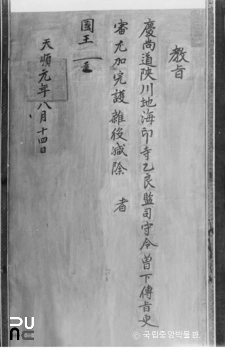 教旨
慶尚道陜川地海印寺乙良監司守令曽下傳旨更
審尤加完護雜役減除 者
國王
天順元年八月十四日
국립중앙박물관